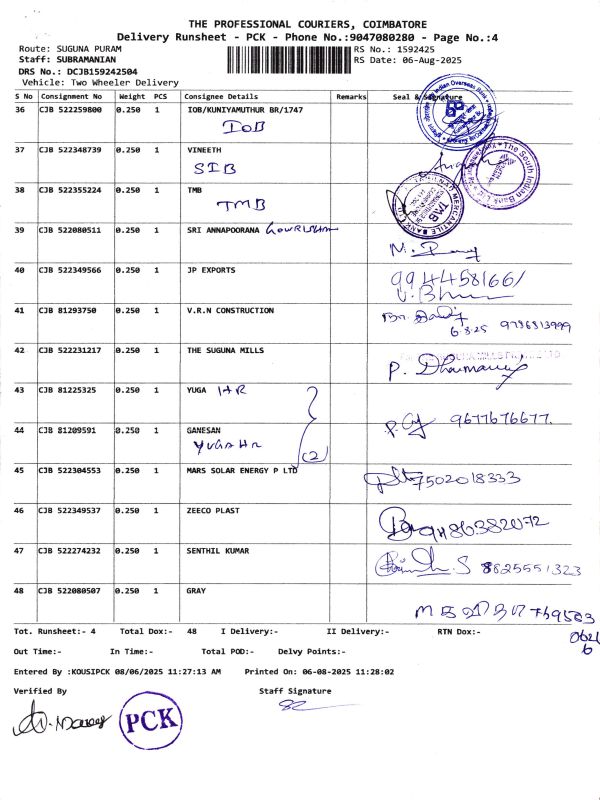 THE PROFESSIONAL COURIERS, COIMBATORE
Delivery Runsheet - PCK - Phone No.:9047080280 - Page No.:4
Route: SUGUNA PURAM RS No.: 1592425
Staff: SUBRAMANIAN RS Date: 06-Aug-2025
DRS No.: DCJB159242504
Vehicle: Two Wheeler Delivery
S No Consignment No Weight PCS Consignee Details Remarks Seal & Signature
36 CJB 522259800 0.250 1 IOB/KUNIYAMUTHUR BR/1747
IOB
37 CJB 522348739 0.250 1 VINEETH
SIB
38 CJB 522355224 0.250 1 TMB
TMB
39 CJB 522080511 0.250 1 SRI ANNAPOORANA
40 CJB 522349566 0.250 1 JP EXPORTS
9944581661
41 CJB 81293750 0.250 1 V.R.N CONSTRUCTION
9786813999
42 CJB 522231217 0.250 1 THE SUGUNA MILLS
43 CJB 81225325 0.250 1 YUGA HR
44 CJB 81209591 0.250 1 GANESAN 9677676677.
YUGA HR (2)
45 CJB 522304553 0.250 1 MARS SOLAR ENERGY P LTD
7502018333
46 CJB 522349537 0.250 1 ZEECO PLAST
47 CJB 522274232 0.250 1 SENTHIL KUMAR
8825551323
48 CJB 522080507 0.250 1 GRAY
Tot. Runsheet:- 4 Total Dox:- 48 I Delivery:- II Delivery:- RTN Dox:-
Out Time:- In Time:- Total POD:- Delvy Points:-
Entered By :KOUSIPCK 08/06/2025 11:27:13 AM Printed On: 06-08-2025 11:28:02
Verified By Staff Signature
PCK